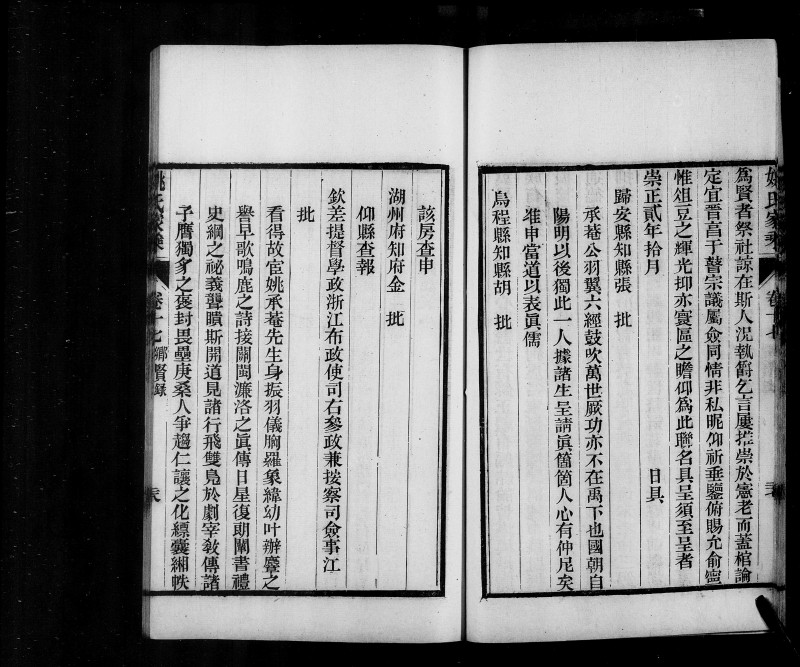 姚氏家乘
卷十七
為賢者祭社諒在斯人況執爵乞言屢推崇於憲老而蓋棺論
定宜晉高于瞽宗議屬僉同情非私昵仰祈垂鑒俯賜允俞寧
惟俎豆之輝光抑亦寰區之瞻仰為此聯名具呈須至呈者
崇正貳年拾月 日具
歸安縣知縣張 批
承菴公羽翼六經鼓吹萬世厥功亦不在禹下也國朝自
陽明以後獨此一人據諸生呈請眞箇箇人心有仲尼矣
准申當道以表眞儒
烏程縣知縣胡 批
該房查申
湖州府知府金 批
仰縣查報
欽差提督學政浙江布政使司右參政兼按察司僉事江
批
看得故宦姚承菴先生身振羽儀胸羅象緯幼叶辦麞之
譽早歌鳴鹿之詩接關閩濂洛之眞傳日星復朗闡書禮
史綱之祕義聾瞶斯開道見諸行飛雙鳧於劇宰教傳諸
子膺獨豸之褒封畏壘庚桑人爭趨仁讓之化縹囊緗帙
姚氏家乘
卷十七 鄉賢錄